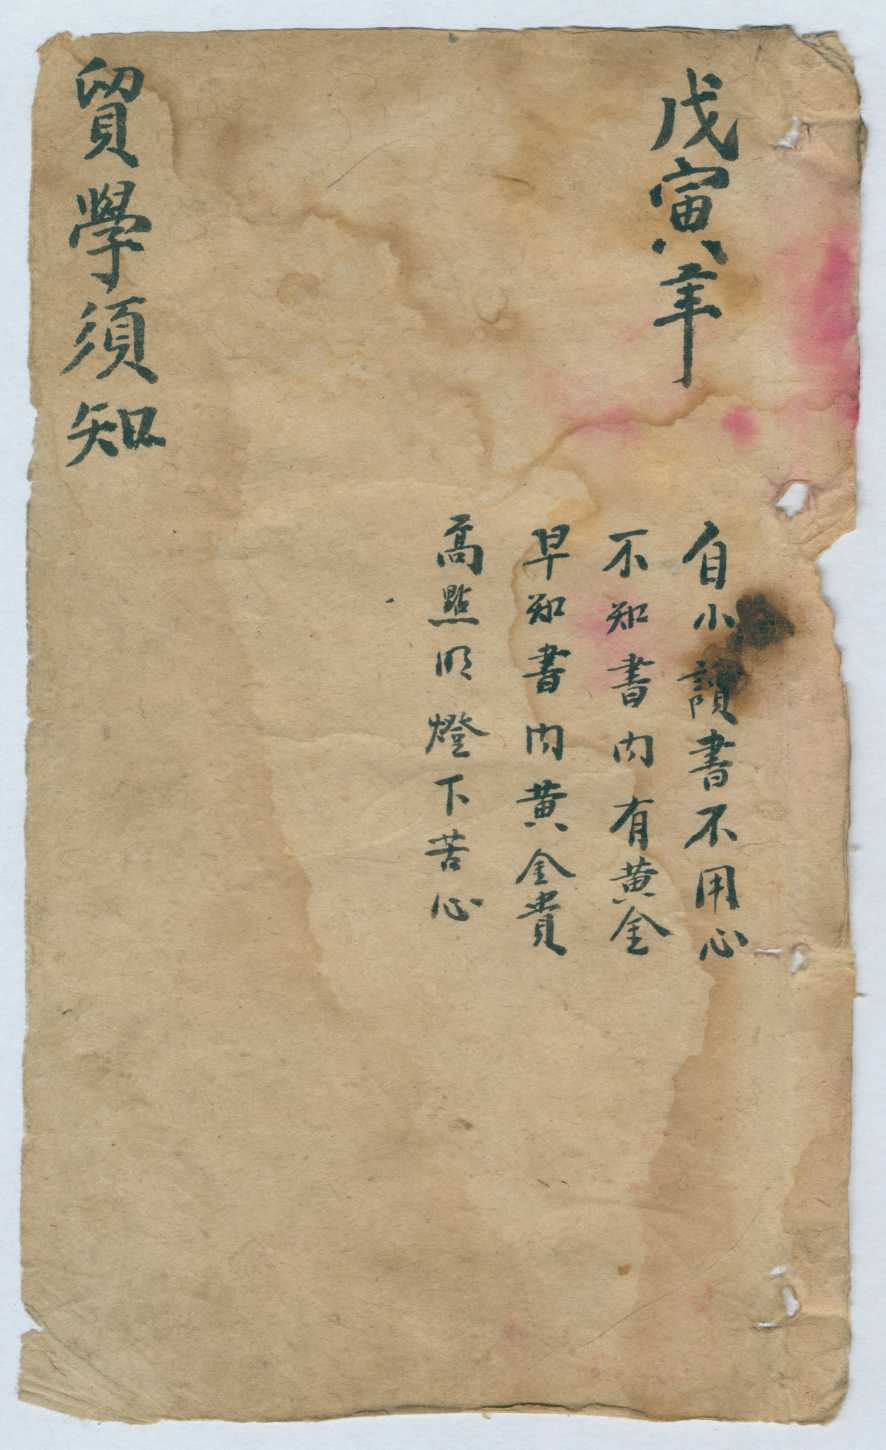 戊寅年
自小讀書不用心
不知書内有黄金
早知書内黄金貴
高點明燈下苦心
貿學須知